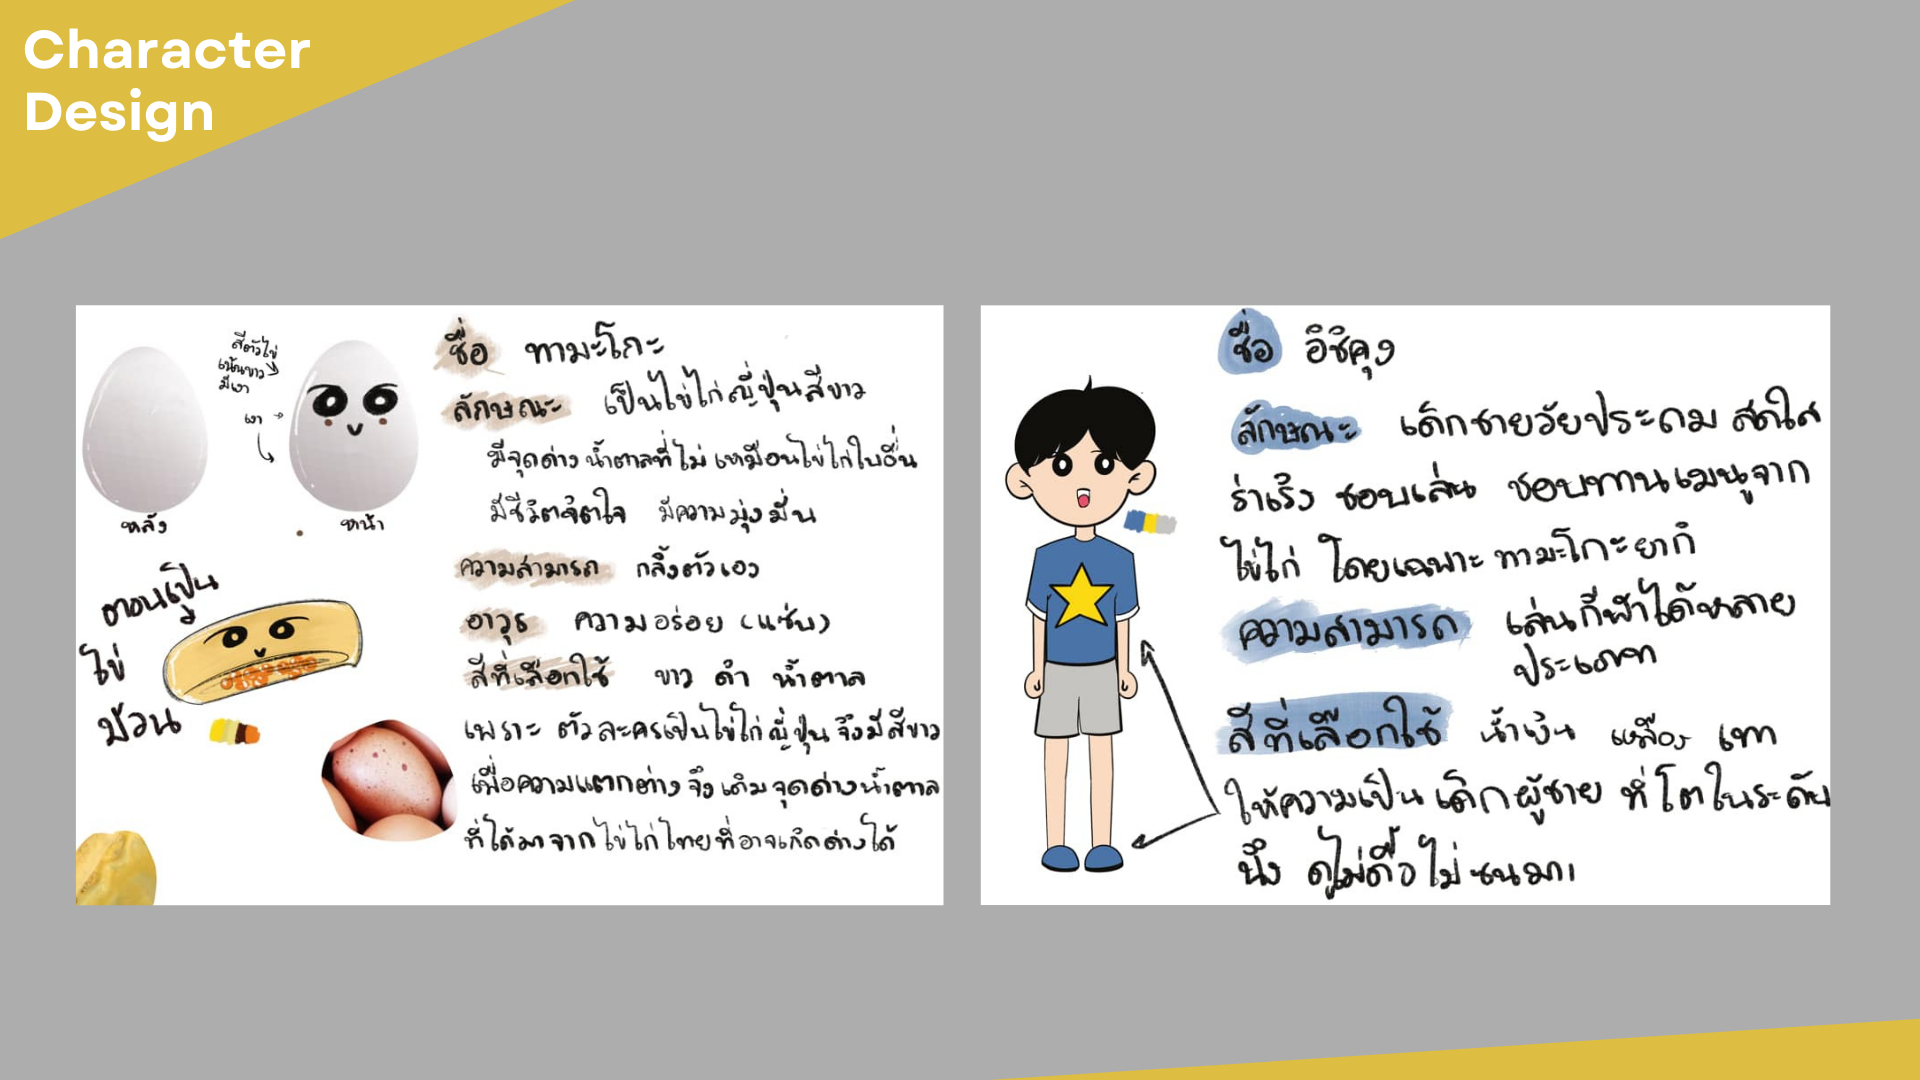 Character
Design
สีตัวไข่
เน้นขาว
มีเงา
เงา
หลัง
หน้า
ตอนเป็น
ไข่
ม้วน
ชื่อ ทามะโกะ
ลักษณะ เป็นไข่ไก่ญี่ปุ่นสีขาว
มีจุดด่าง น้ำตาลที่ไม่ เหมือนไข่ไก่ใบอื่น
มีชีวิตจิตใจ มีความมุ่งมั่น
ความสามารถ กลิ้งตัวเอง
อาวุธ ความอร่อย (แซ่บ)
สีที่เลือกใช้ ขาว ดำ น้ำตาล
เพราะ ตัวละครเป็นไข่ไก่ญี่ปุ่น จึงมีสีขาว
เพื่อความแตกต่าง จึง เติม จุดด่างน้ำตาล
ที่ได้มาจากไข่ไก่ไทยที่อาจเกิดด่างได้
ชื่อ อิชิคุง
ลักษณะ เด็กชายวัยประถม สดใส
ร่าเริง ชอบเล่น ชอบทานเมนูจาก
ไข่ไก่ โดยเฉพาะ ทามะโกะยากิ
ความสามารถ เล่นกีฬาได้หลาย
ประเภท
สีที่เลือกใช้ น้ำเงิน เหลือง เทา
ให้ความเป็น เด็กผู้ชาย ที่โตในระดับ
นึง ดูไม่ดื้อ ไม่ซน